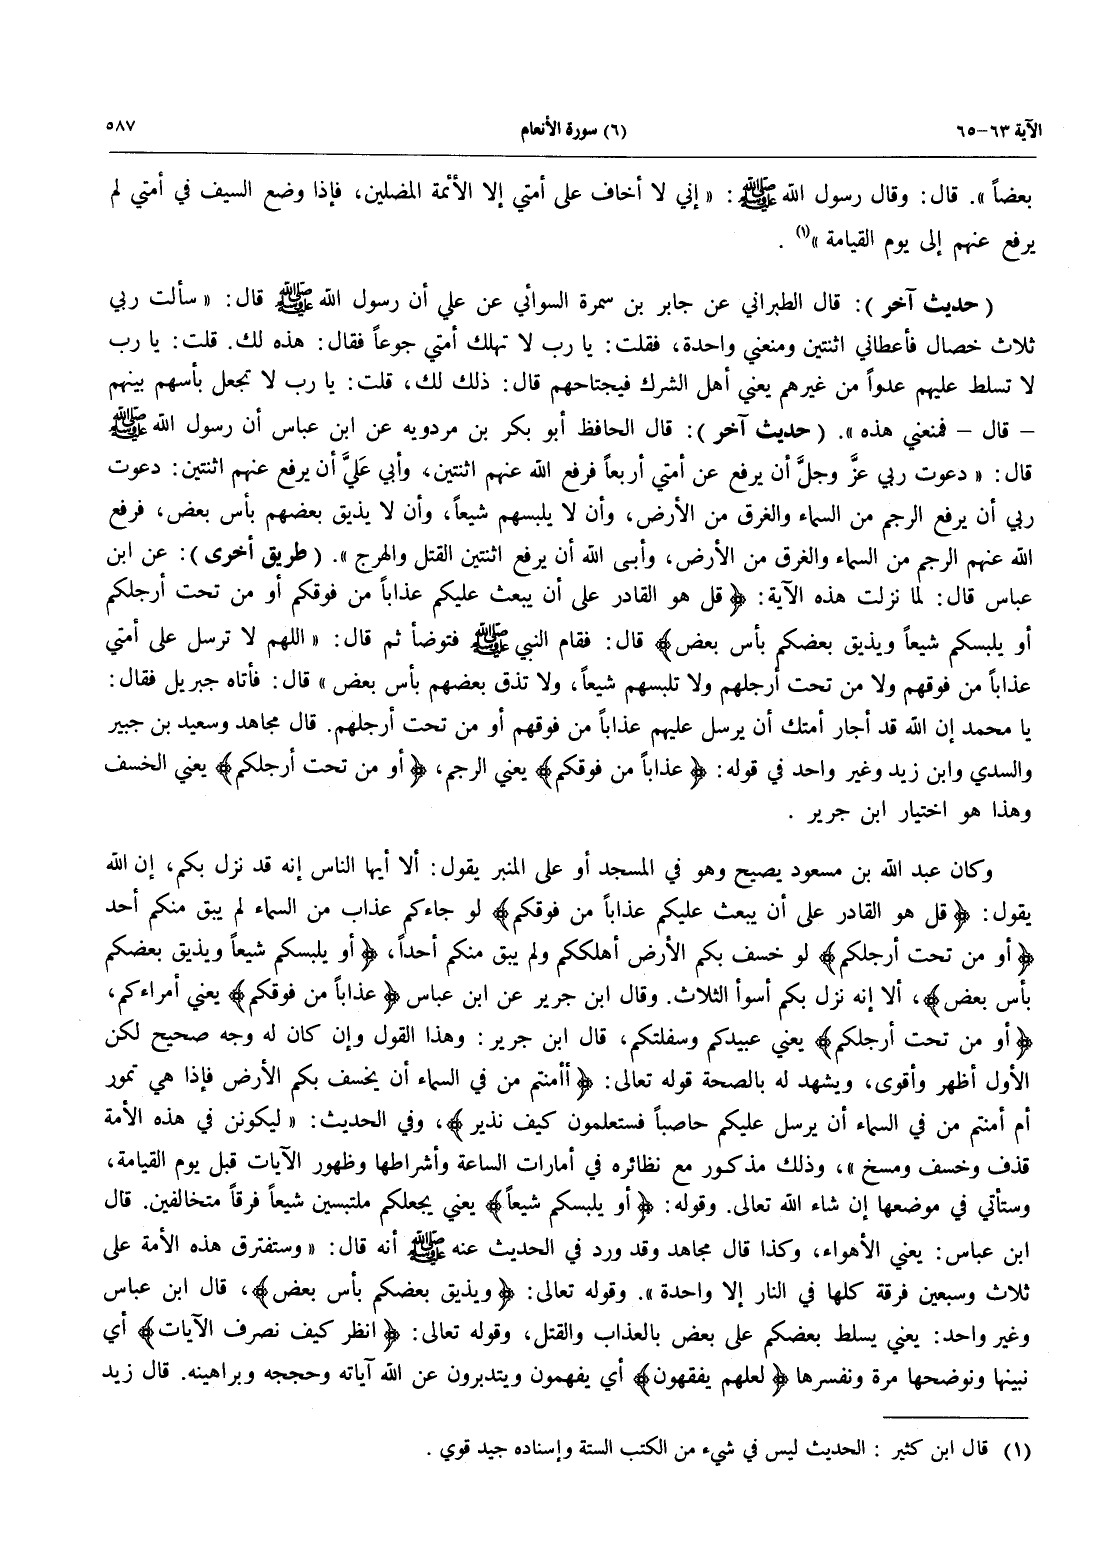 الآية ٦٣-٦٥ (٦) سورة الأنعام ٥٨٧
بعضاً ». قال: وقال رسول الله ﷺ: « إني لا أخاف على أمتي إلا الأئمة المضلين، فإذا وضع السيف في أمتي لم
يرفع عنهم إلى يوم القيامة »(١) .
( حديث آخر ): قال الطبراني عن جابر بن سمرة السوائي عن علي أن رسول الله ﷺ قال: « سألت ربي
ثلاث خصال فأعطاني اثنتين ومنعني واحدة، فقلت: يا رب لا تهلك أمتي جوعاً فقال: هذه لك. قلت: يا رب
لا تسلط عليهم عدواً من غيرهم يعني أهل الشرك فيجتاحهم قال: ذلك لك، قلت: يا رب لا تجعل بأسهم بينهم
– قال – فمنعني هذه ». ( حديث آخر ): قال الحافظ أبو بكر بن مردويه عن ابن عباس أن رسول الله ﷺ
قال: « دعوت ربي عزَّ وجلَّ أن يرفع عن أمتي أربعاً فرفع الله عنهم اثنتين، وأبي عَليَّ أن يرفع عنهم اثنتين: دعوت
ربي أن يرفع الرجم من السماء والغرق من الأرض، وأن لا يلبسهم شيعاً، وأن لا يذيق بعضهم بأس بعض، فرفع
الله عنهم الرجم من السماء والغرق من الأرض، وأبى الله أن يرفع اثنتين القتل والهرج ». ( طريق أخرى ): عن ابن
عباس قال: لما نزلت هذه الآية: ﴿ قل هو القادر على أن يبعث عليكم عذاباً من فوقكم أو من تحت أرجلكم
أو يلبسكم شيعاً ويذيق بعضكم بأس بعض﴾ قال: فقام النبي ﷺ فتوضأ ثم قال: « اللهم لا ترسل على أمتي
عذاباً من فوقهم ولا من تحت أرجلهم ولا تلبسهم شيعاً، ولا تذق بعضهم بأس بعض » قال: فأتاه جبريل فقال:
يا محمد إن الله قد أجار أمتك أن يرسل عليهم عذاباً من فوقهم أو من تحت أرجلهم. قال مجاهد وسعيد بن جبير
والسدي وابن زيد وغير واحد في قوله: ﴿ عذاباً من فوقكم﴾ يعني الرجم، ﴿ أو من تحت أرجلكم﴾ يعني الخسف
وهذا هو اختيار ابن جرير .
وكان عبد الله بن مسعود يصيح وهو في المسجد أو على المنبر يقول: ألا أيها الناس إنه قد نزل بكم، إن الله
يقول: ﴿ قل هو القادر على أن يبعث عليكم عذاباً من فوقكم﴾ لو جاءكم عذاب من السماء لم يبق منكم أحد
﴿ أو من تحت أرجلكم﴾ لو خسف بكم الأرض أهلككم ولم يبق منكم أحداً، ﴿ أو يلبسكم شيعاً ويذيق بعضكم
بأس بعض﴾، ألا إنه نزل بكم أسوأ الثلاث. وقال ابن جرير عن ابن عباس ﴿ عذاباً من فوقكم﴾ يعني أمراءكم،
﴿ أو من تحت أرجلكم﴾ يعني عبيدكم وسفلتكم، قال ابن جرير: وهذا القول وإن كان له وجه صحيح لكن
الأول أظهر وأقوى، ويشهد له بالصحة قوله تعالى: ﴿ أأمنتم من في السماء أن يخسف بكم الأرض فإذا هي تمور
أم أمنتم من في السماء أن يرسل عليكم حاصباً فستعلمون كيف نذير ﴾، وفي الحديث: « ليكونن في هذه الأمة
قذف وخسف ومسخ »، وذلك مذكور مع نظائره في أمارات الساعة وأشراطها وظهور الآيات قبل يوم القيامة،
وستأتي في موضعها إن شاء الله تعالى. وقوله: ﴿ أو يلبسكم شيعاً﴾ يعني يجعلكم ملتبسين شيعاً فرقاً متخالفين. قال
ابن عباس: يعني الأهواء، وكذا قال مجاهد وقد ورد في الحديث عنه ﷺ أنه قال: « وستفترق هذه الأمة على
ثلاث وسبعين فرقة كلها في النار إلا واحدة ». وقوله تعالى: ﴿ ويذيق بعضكم بأس بعض﴾، قال ابن عباس
وغير واحد: يعني يسلط بعضكم على بعض بالعذاب والقتل، وقوله تعالى: ﴿ انظر كيف نصرف الآيات﴾ أي
نبينها ونوضحها مرة ونفسرها ﴿ لعلهم يفقهون﴾ أي يفهمون ويتدبرون عن الله آياته وحججه وبراهينه. قال زيد
(١) قال ابن كثير : الحديث ليس في شيء من الكتب الستة وإسناده جيد قوي .